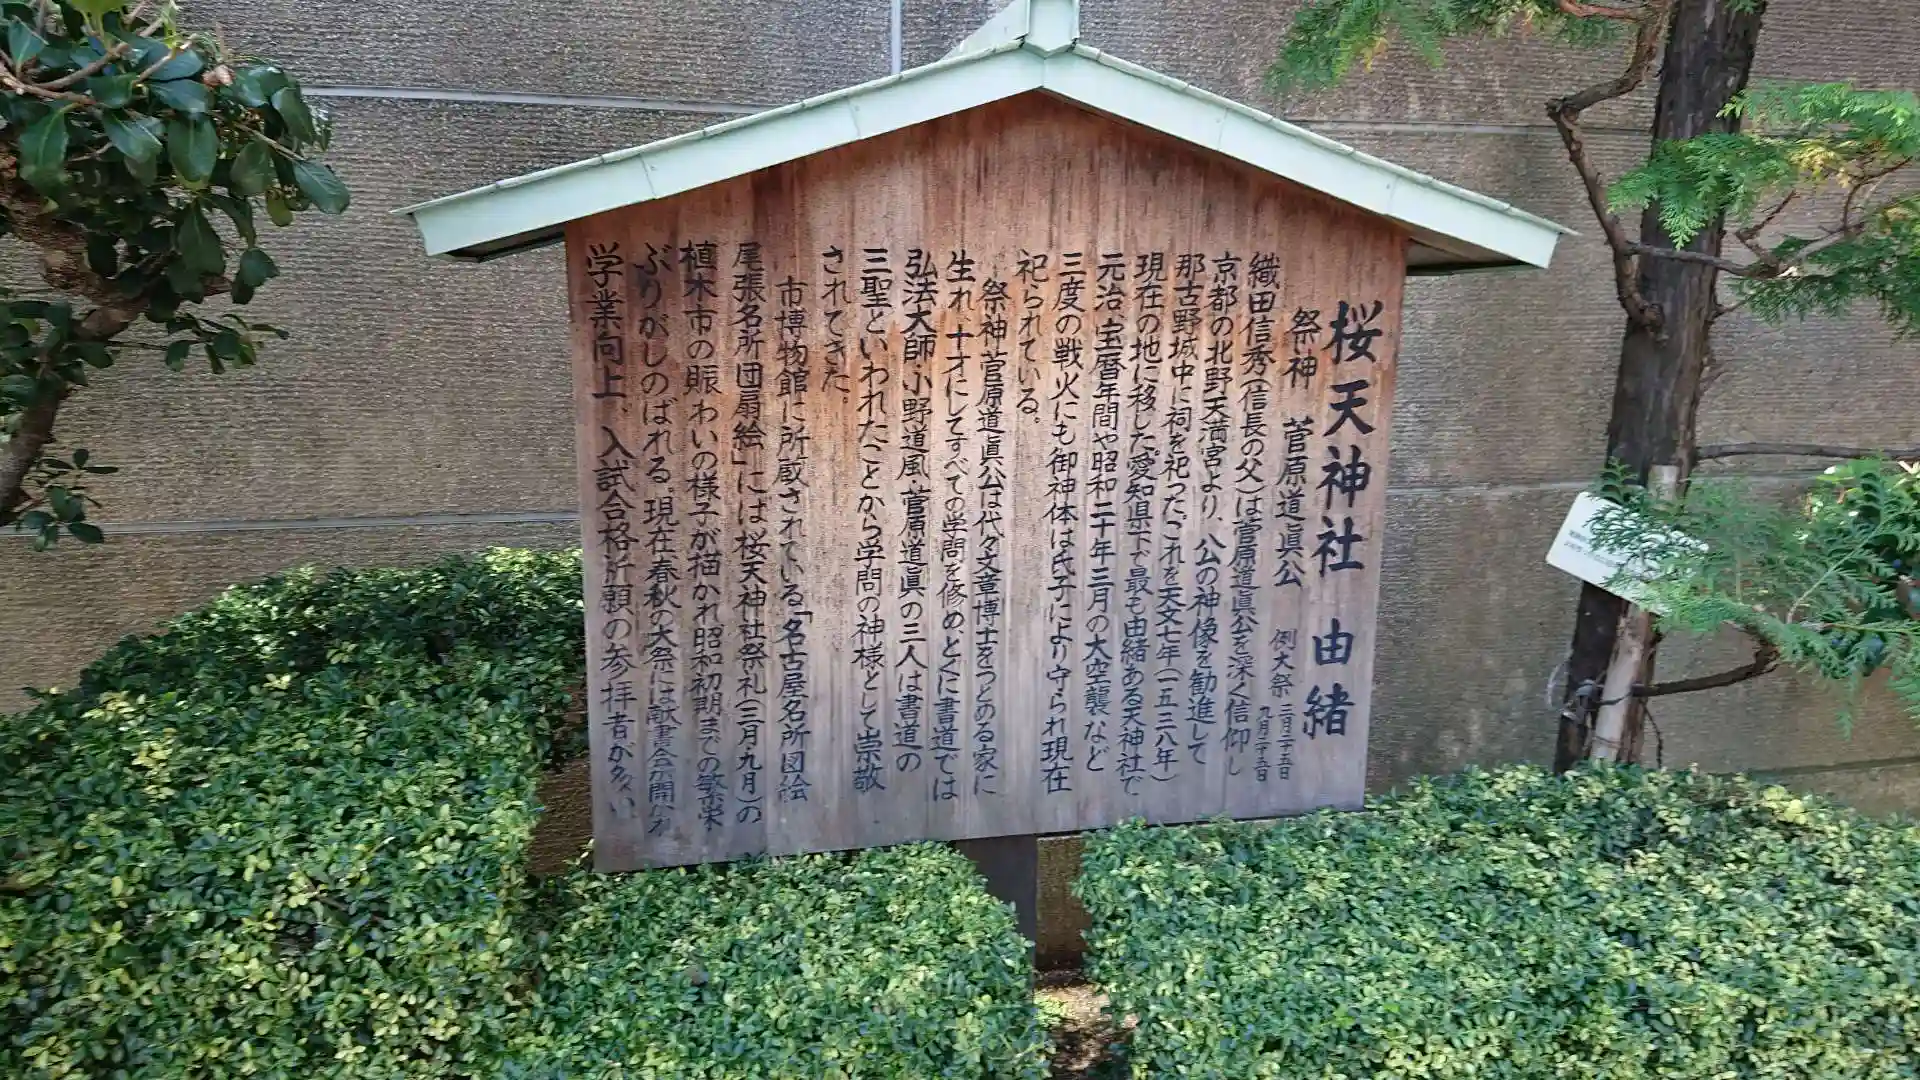 桜天神社 由緒
祭神 菅原道眞公 例大祭 二月二十五日
九月二十五日
織田信秀(信長の父)は菅原道眞公を深く信仰し
京都の北野天満宮より、公の神像を勧進して
那古野城中に祠を祀った。これを天文七年(一五三八年)
現在の地に移した。愛知県下で最も由緒ある天神社で
元治、宝暦年間や昭和二十年三月の大空襲など
三度の戦火にも御神体は氏子により守られ現在
祀られている。
祭神菅原道眞公は代々文章博士をつとめる家に
生れ、十才にしてすべての学問を修め、とくに書道では
弘法大師・小野道風・菅原道眞の三人は書道の
三聖といわれたことから学問の神様として崇敬
されてきた。
市博物館に所蔵されている「名古屋名所図絵
尾張名所団扇絵」には桜天神社祭礼(三月、九月)の
植木市の賑わいの様子が描かれ昭和初期までの繁栄
ぶりがしのばれる。現在春秋の大祭には献書会開かれ
学業向上、入試合格祈願の参拝者が多い